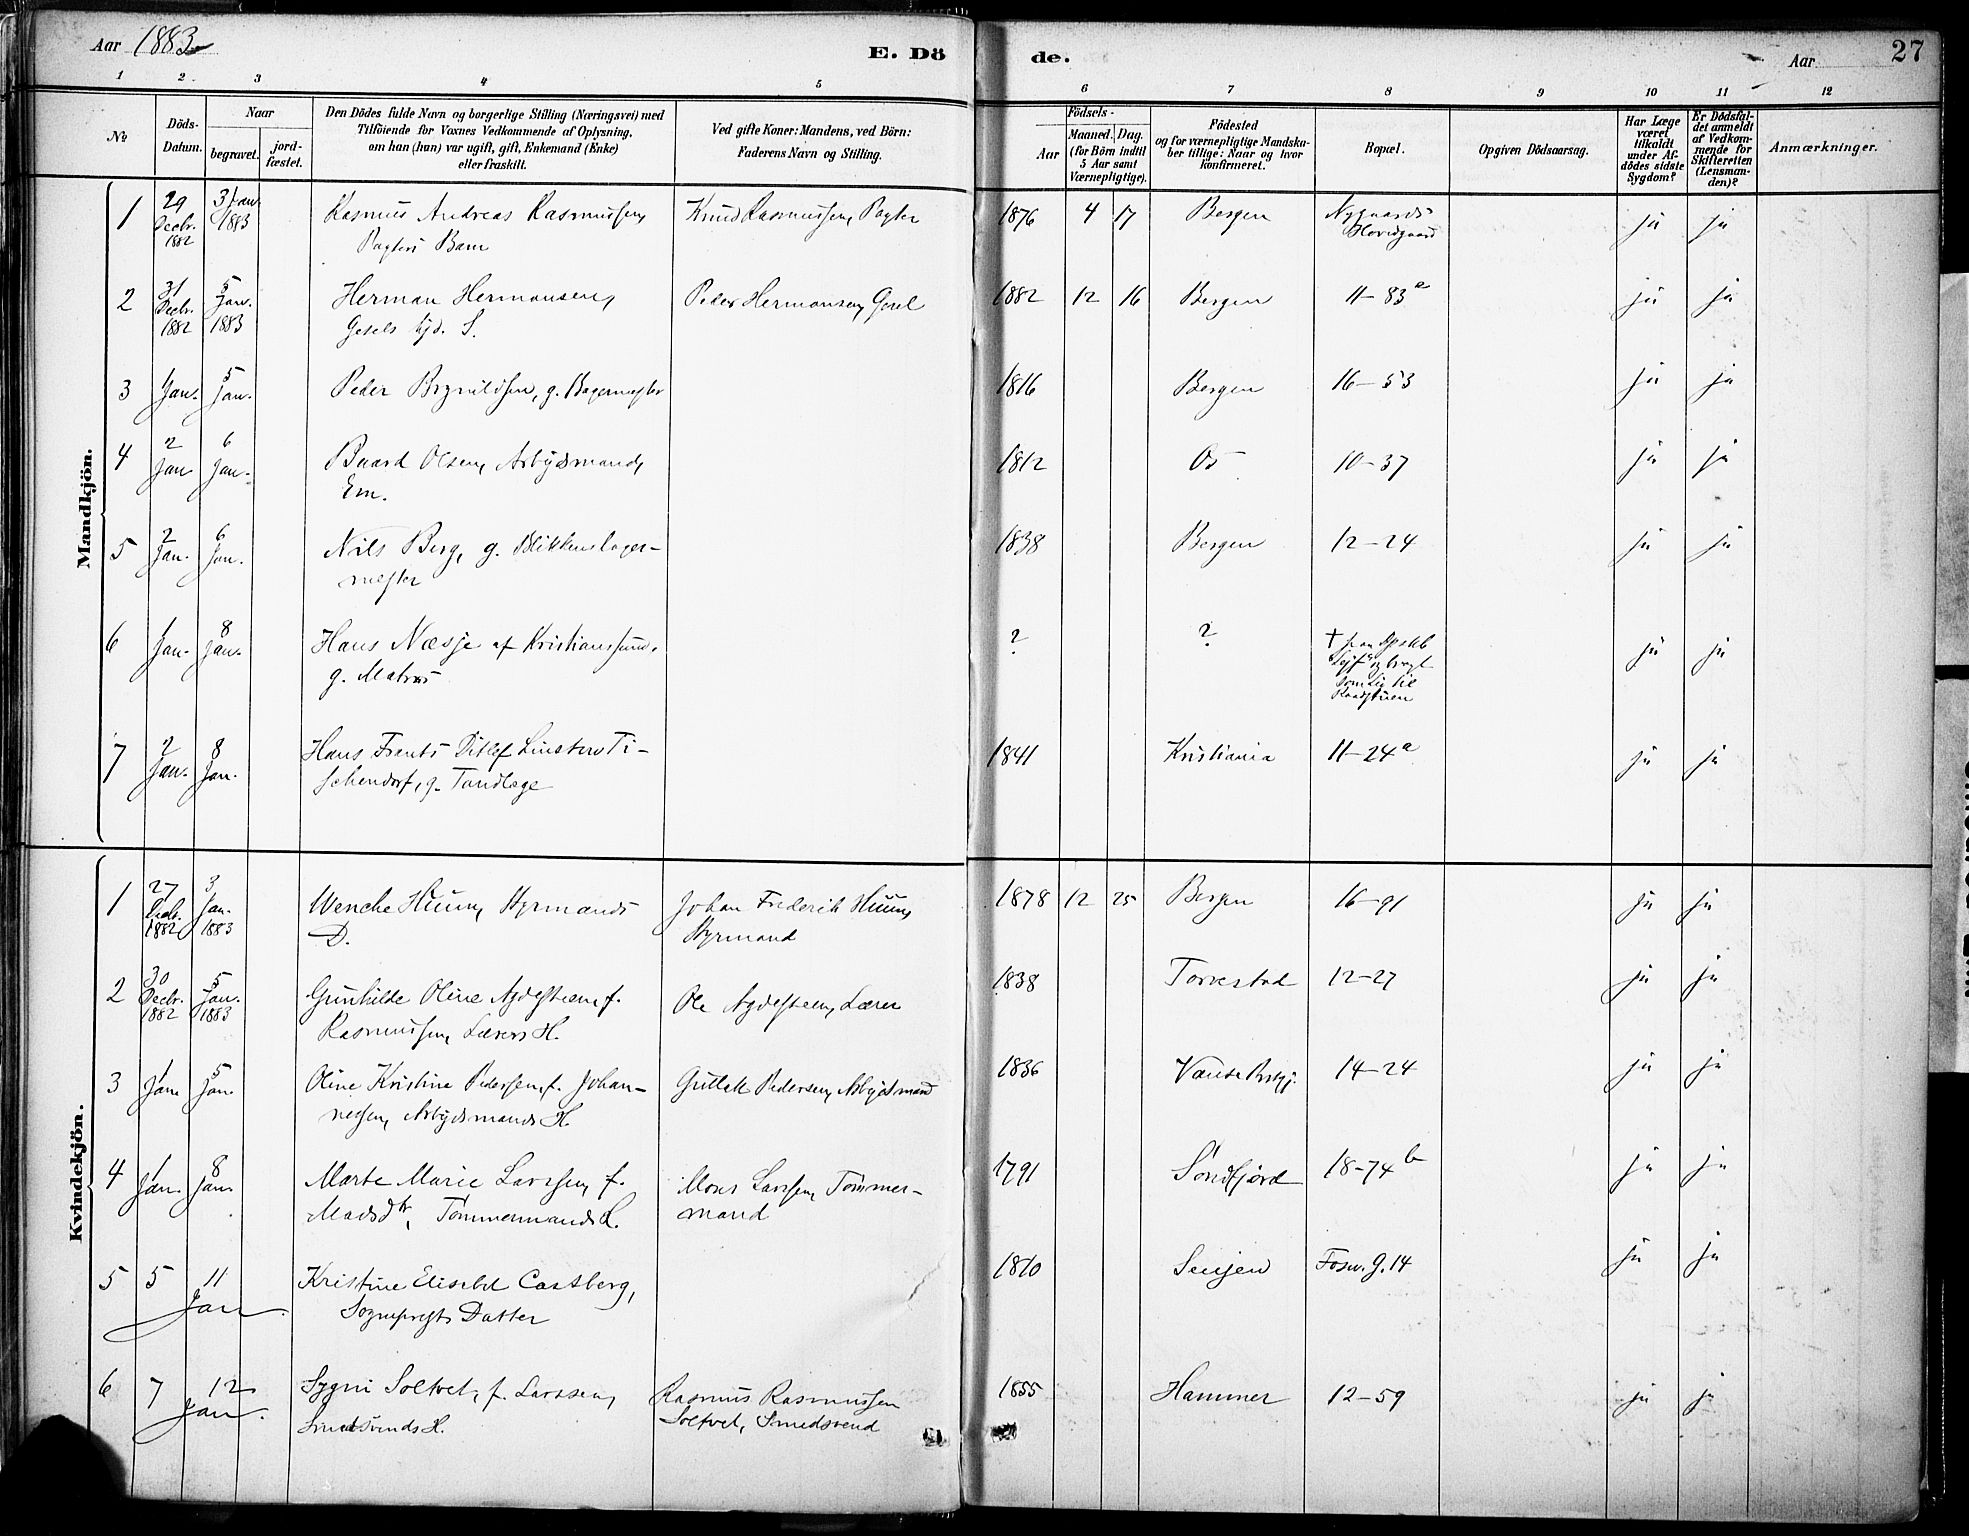 Aar 1883
E. Dö
de.
Aar
27
1 2 3 4 5 6 7 8 9 10 11 12
№
Döds-
Datum.
Naar
begravet.
jord-
fæstet.
Den Dödes fulde Navn og borgerlige Stilling (Næringsvei) med
Tilföiende for Voxnes Vedkommende af Oplysning,
om han (hun) var ugift, gift, Enkemand (Enke)
eller fraskilt.
Ved gifte Koner: Mandens, ved Börn:
Faderens Navn og Stilling.
Födsels-
Aar
Maaned. Dag.
(for Börn indtil
5 Aar samt
Værnepligtige).
Födested
og for værnepligtige Mandska-
ber tillige: Naar og hvor
konfirmeret.
Bopæl.
Opgiven Dödsaarsag.
Har Læge
været
tilkaldt
under Af-
dödes sidste
Sygdom?
Er Dödsfal-
det anmeldt
af Vedkom-
mende for
Skifteretten
(Lensman-
den)?
Anmærkninger.
Mandkjön.
1 29 Decbr. 1882 3 Jan. 1883 Rasmus Andreas Rasmussen, Knud Rasmussen, Pagter 1876 4 17 Bergen Nygaards Hovedgaard ja ja
Pagters Barn
2 31 Decbr. 1882 5 Jan. 1883 Herman Hermansen, Peder Hermansen, Gesel 1882 12 16 Bergen 11–83 a ja ja
Gesels S.
3 1 Jan. 5 Jan. Peder Brynildsen, g. Bagermester 1816 Bergen 16–53 ja ja
4 2 Jan 6 Jan. Baard Olsen, Arbejdsmand, 1812 Os 10–37 ja ja
Em.
5 2 Jan. 6 Jan. Nils Berg, g. Blikkenslager- 1838 Bergen 12–24 ja ja
mester
6 1 Jan. 8 Jan. Hans Næsje af Kristianssund, ? ? † fra Dpskb og bragt som Lig til Raadstuen ja ja
g. Matros
7 2 Jan. 8 Jan. Hans Frants Ditlef Linstow Ti- 1841 Kristiania 11–24 a ja ja
schendorf, g. Tandlæge
Kvindekjön.
1 27 Decbr. 1882 3 Jan. 1883 Wenche Huun, Styrmands Johan Frederik Huun, 1878 12 25 Bergen 16–91 ja ja
D. Styrmand
2 30 Decbr. 1882 5 Jan. 1883 Gunhilde Oline Agdesteen, f. Ole Agdesteen, Lærer 1838 Torvestad 12–27 ja ja
Rasmussen, Lærers H.
3 1 Jan. 5 Jan. Oline Kristine Pedersen, f. Johan- Gullak Pedersen, Arbejdsmand 1836 14–24 ja ja
nessen, Arbejdsmands H.
4 1 Jan. 8 Jan. Marte Marie Larssen, f. Mons Larssen, Tömmer- 1791 Söndfjord 18–74 b ja ja
Madsdtr, Tömmermands H. mand
5 5 11 Jan Kristine Elisabet Castberg, 1810 Senjen Fosw. G. 14 ja ja
Sogneprests Datter
6 7 12 Jan. Sygni Soltvet, f. Larssen, Rasmus Rasmussen 1855 Hammer 12–59 ja ja
Smedsvends H. Soltvet, Smedsvend